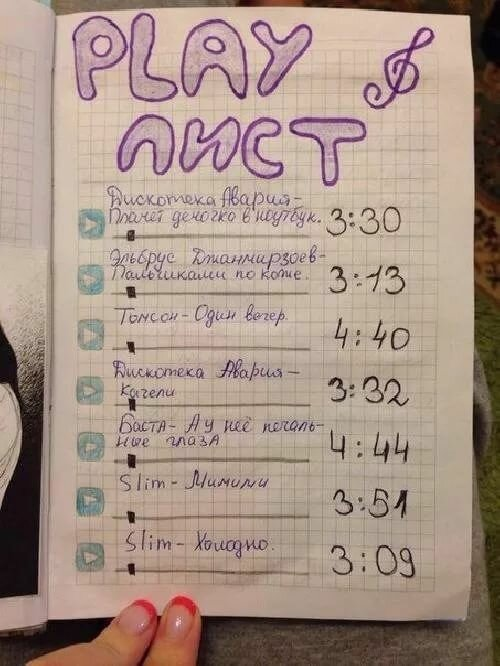 PLAY
ЛИСТ
Дискотека Авария-
Плачет девочка в ноутбук.
3:30
Эльбрус Джанмирзоев-
Пальчиками по коже.
3:13
Томсон- Один вечер.
4:40
Дискотека Авария-
Качели
3:32
Баста- А у неё печаль-
ные глаза
4:44
Slim- Мимими
3:51
Slim- Холодно.
3:09